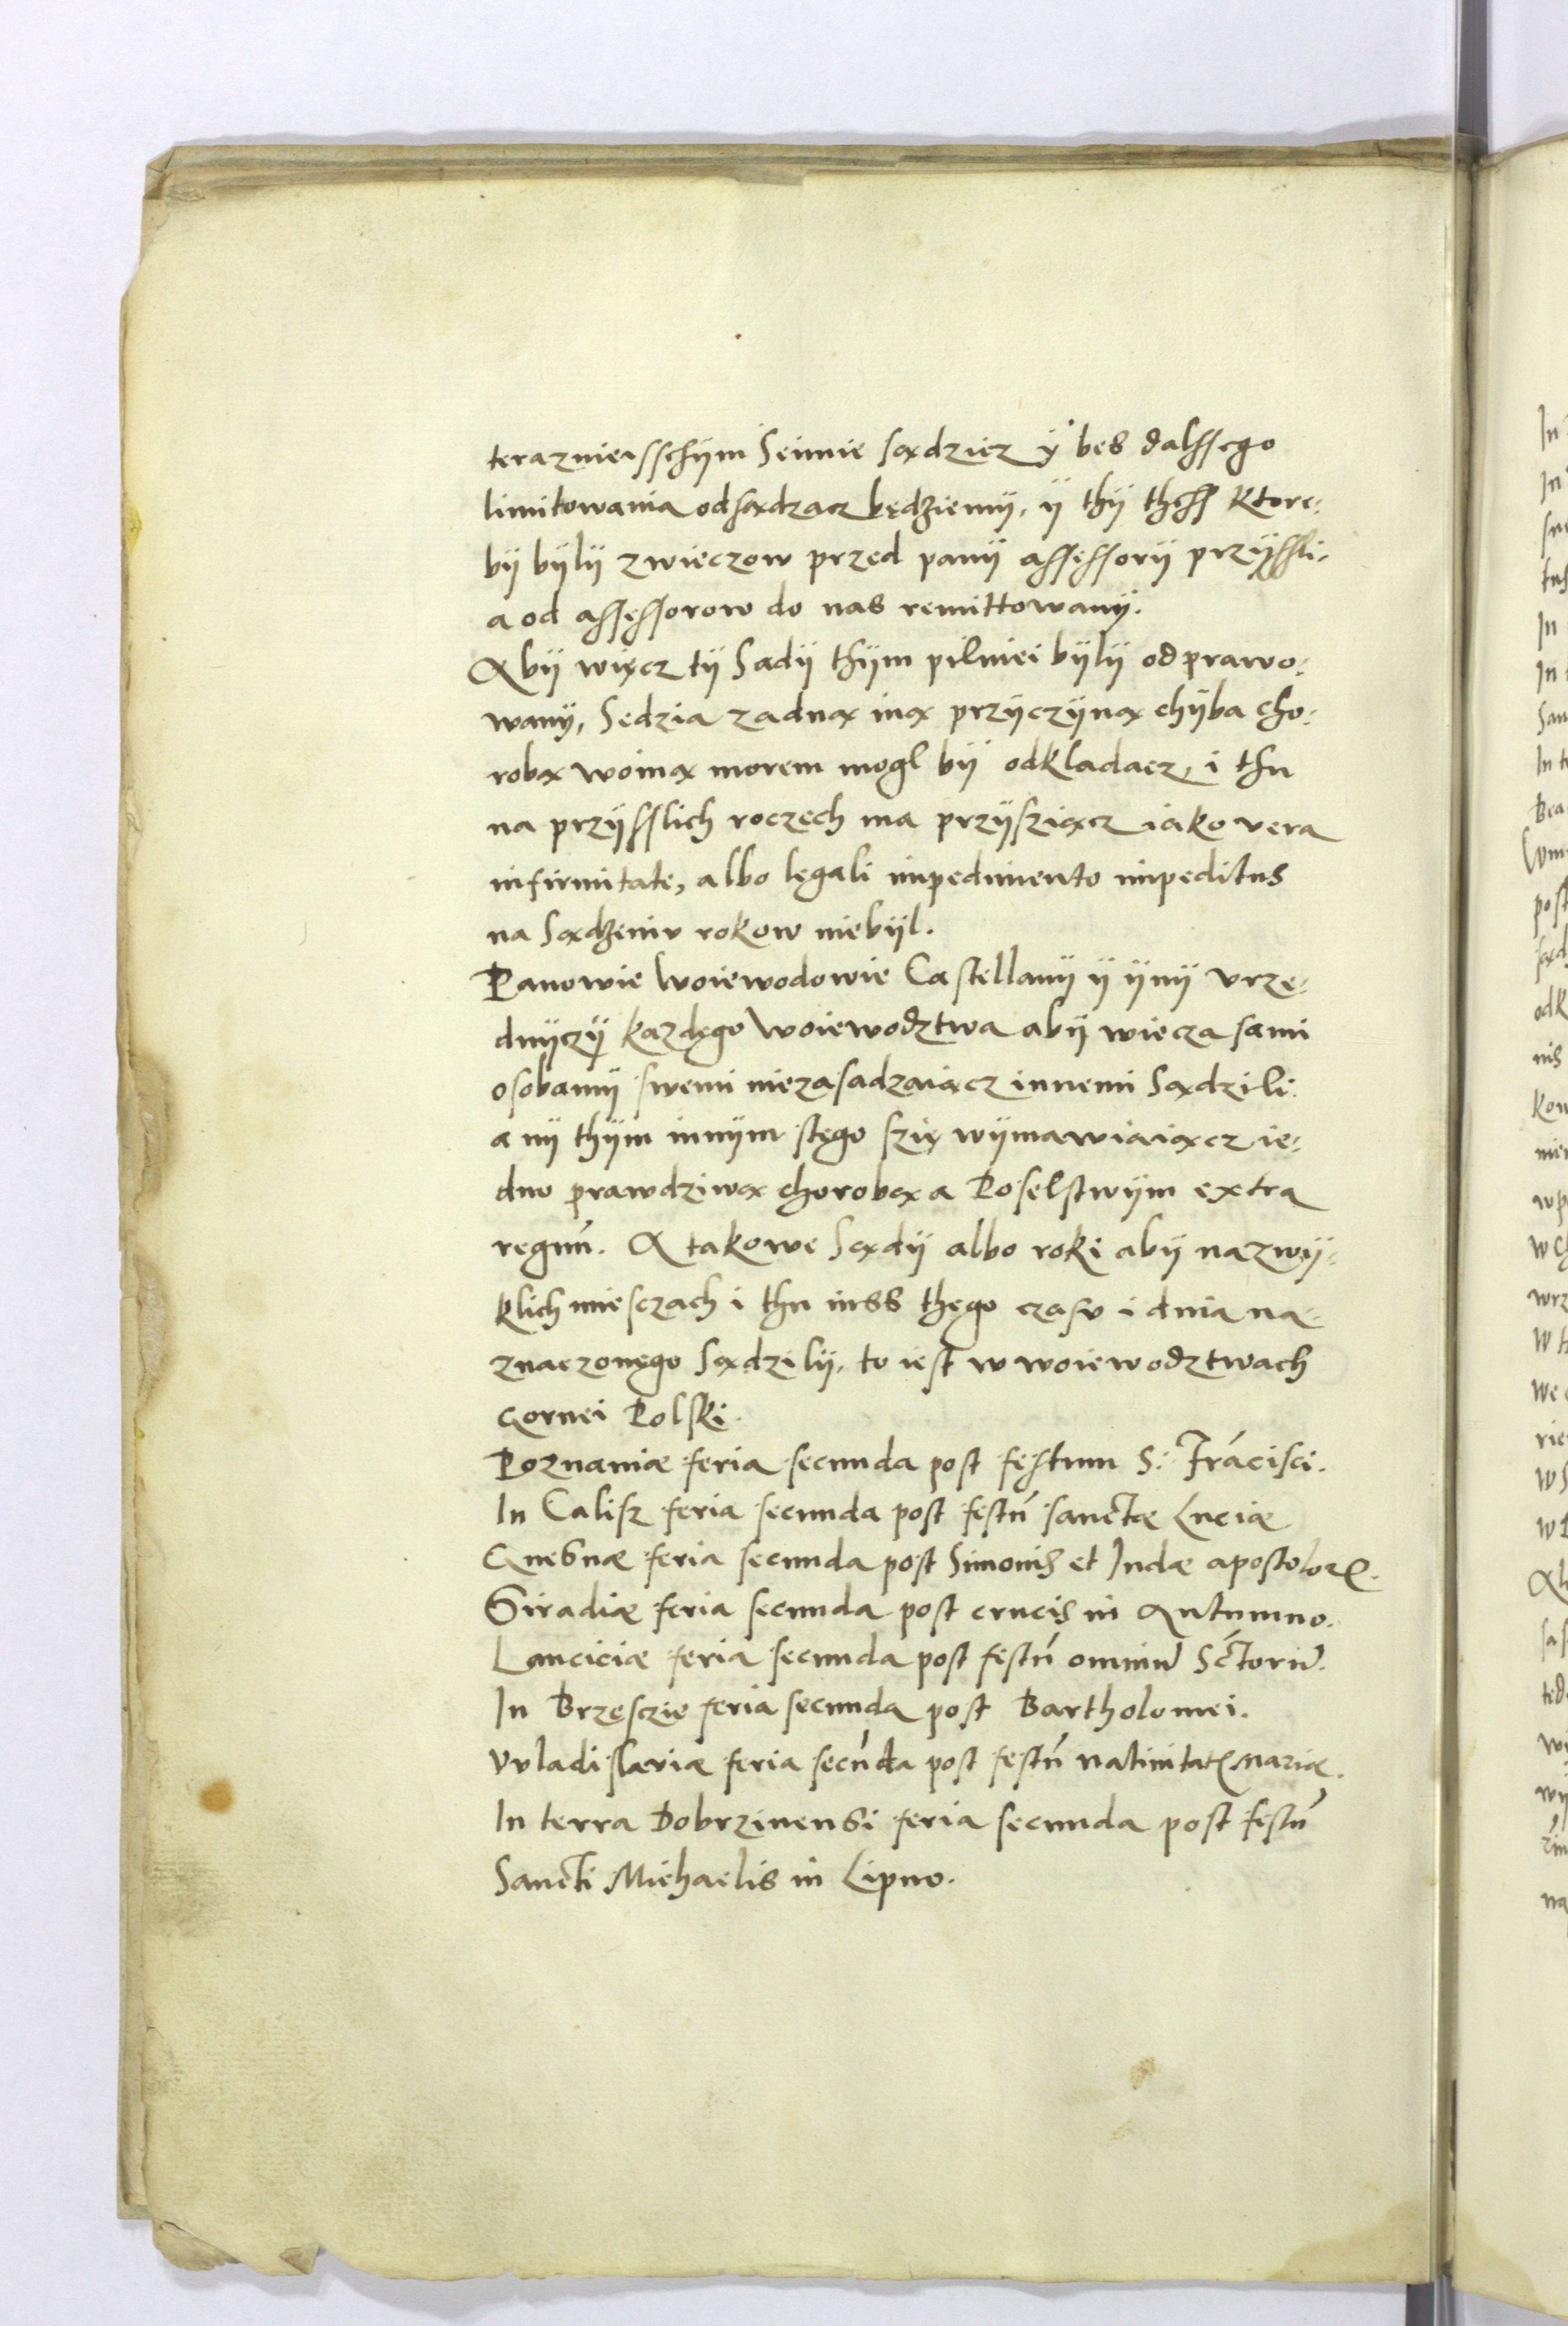 terazmieisschÿm Seimie sądzicz ÿ bes dalssego
limitowania odsądzacz będziemÿ, ÿ thÿ thess ktore-
bÿ bÿlÿ zwieczow przed panÿ assessorÿ przÿssli-
a od assessorow do nas remittowanÿ.
Abÿ więcz tÿ Sadÿ thÿm pilniei bÿlÿ odprawo-
wanÿ, Sędzia zadną iną przÿczÿną chÿba cho-
robą woiną morem mogl bÿ odkladacz, i thu
na przÿsslich roczech ma przÿsziącz iako vera
infirmitate, albo legali impedimento impeditus
na Sądzeniu rokow niebÿl.
Panowie Woiewodowie Castellanÿ ÿ ÿnÿ vrzę-
dnÿczÿ kazdęgo Woiewodztwa abÿ wiecza sami
osobamÿ swemi niezasadzaiącz innemi Sądzili
a nÿ thÿm innÿm stęgo szię wÿmawiaiącz ie-
dno prawdziwą chorobą a Poselstwÿm extra
regnũ. A takowe Sądÿ albo roki abÿ nazwÿ-
klich miesczach i thu inss thęgo czasu i dnia na-
znaczonęgo Sądzilÿ, to iest w woiewodztwach
Gornei Polski.
Poznaniæ feria secunda post festum S. Frãcisci.
In Calisz feria secunda post festũ sanctæ Luciæ
Gnesnæ feria secunda post Simonis et Iudæ apostoloꝝ.
Siradiæ feria secunda post crucis in Autumno.
Lanciciæ feria secunda post festũ omniũ Sctoriũ.
In Brzęsczie feria secunda post Bartholomei.
Vvladislaviæ feria secũda post festũ natiuitatꝭ Mariæ.
In terra Dobrzinensi feria secunda post festũ
Sancti Michaelis in Lipno.